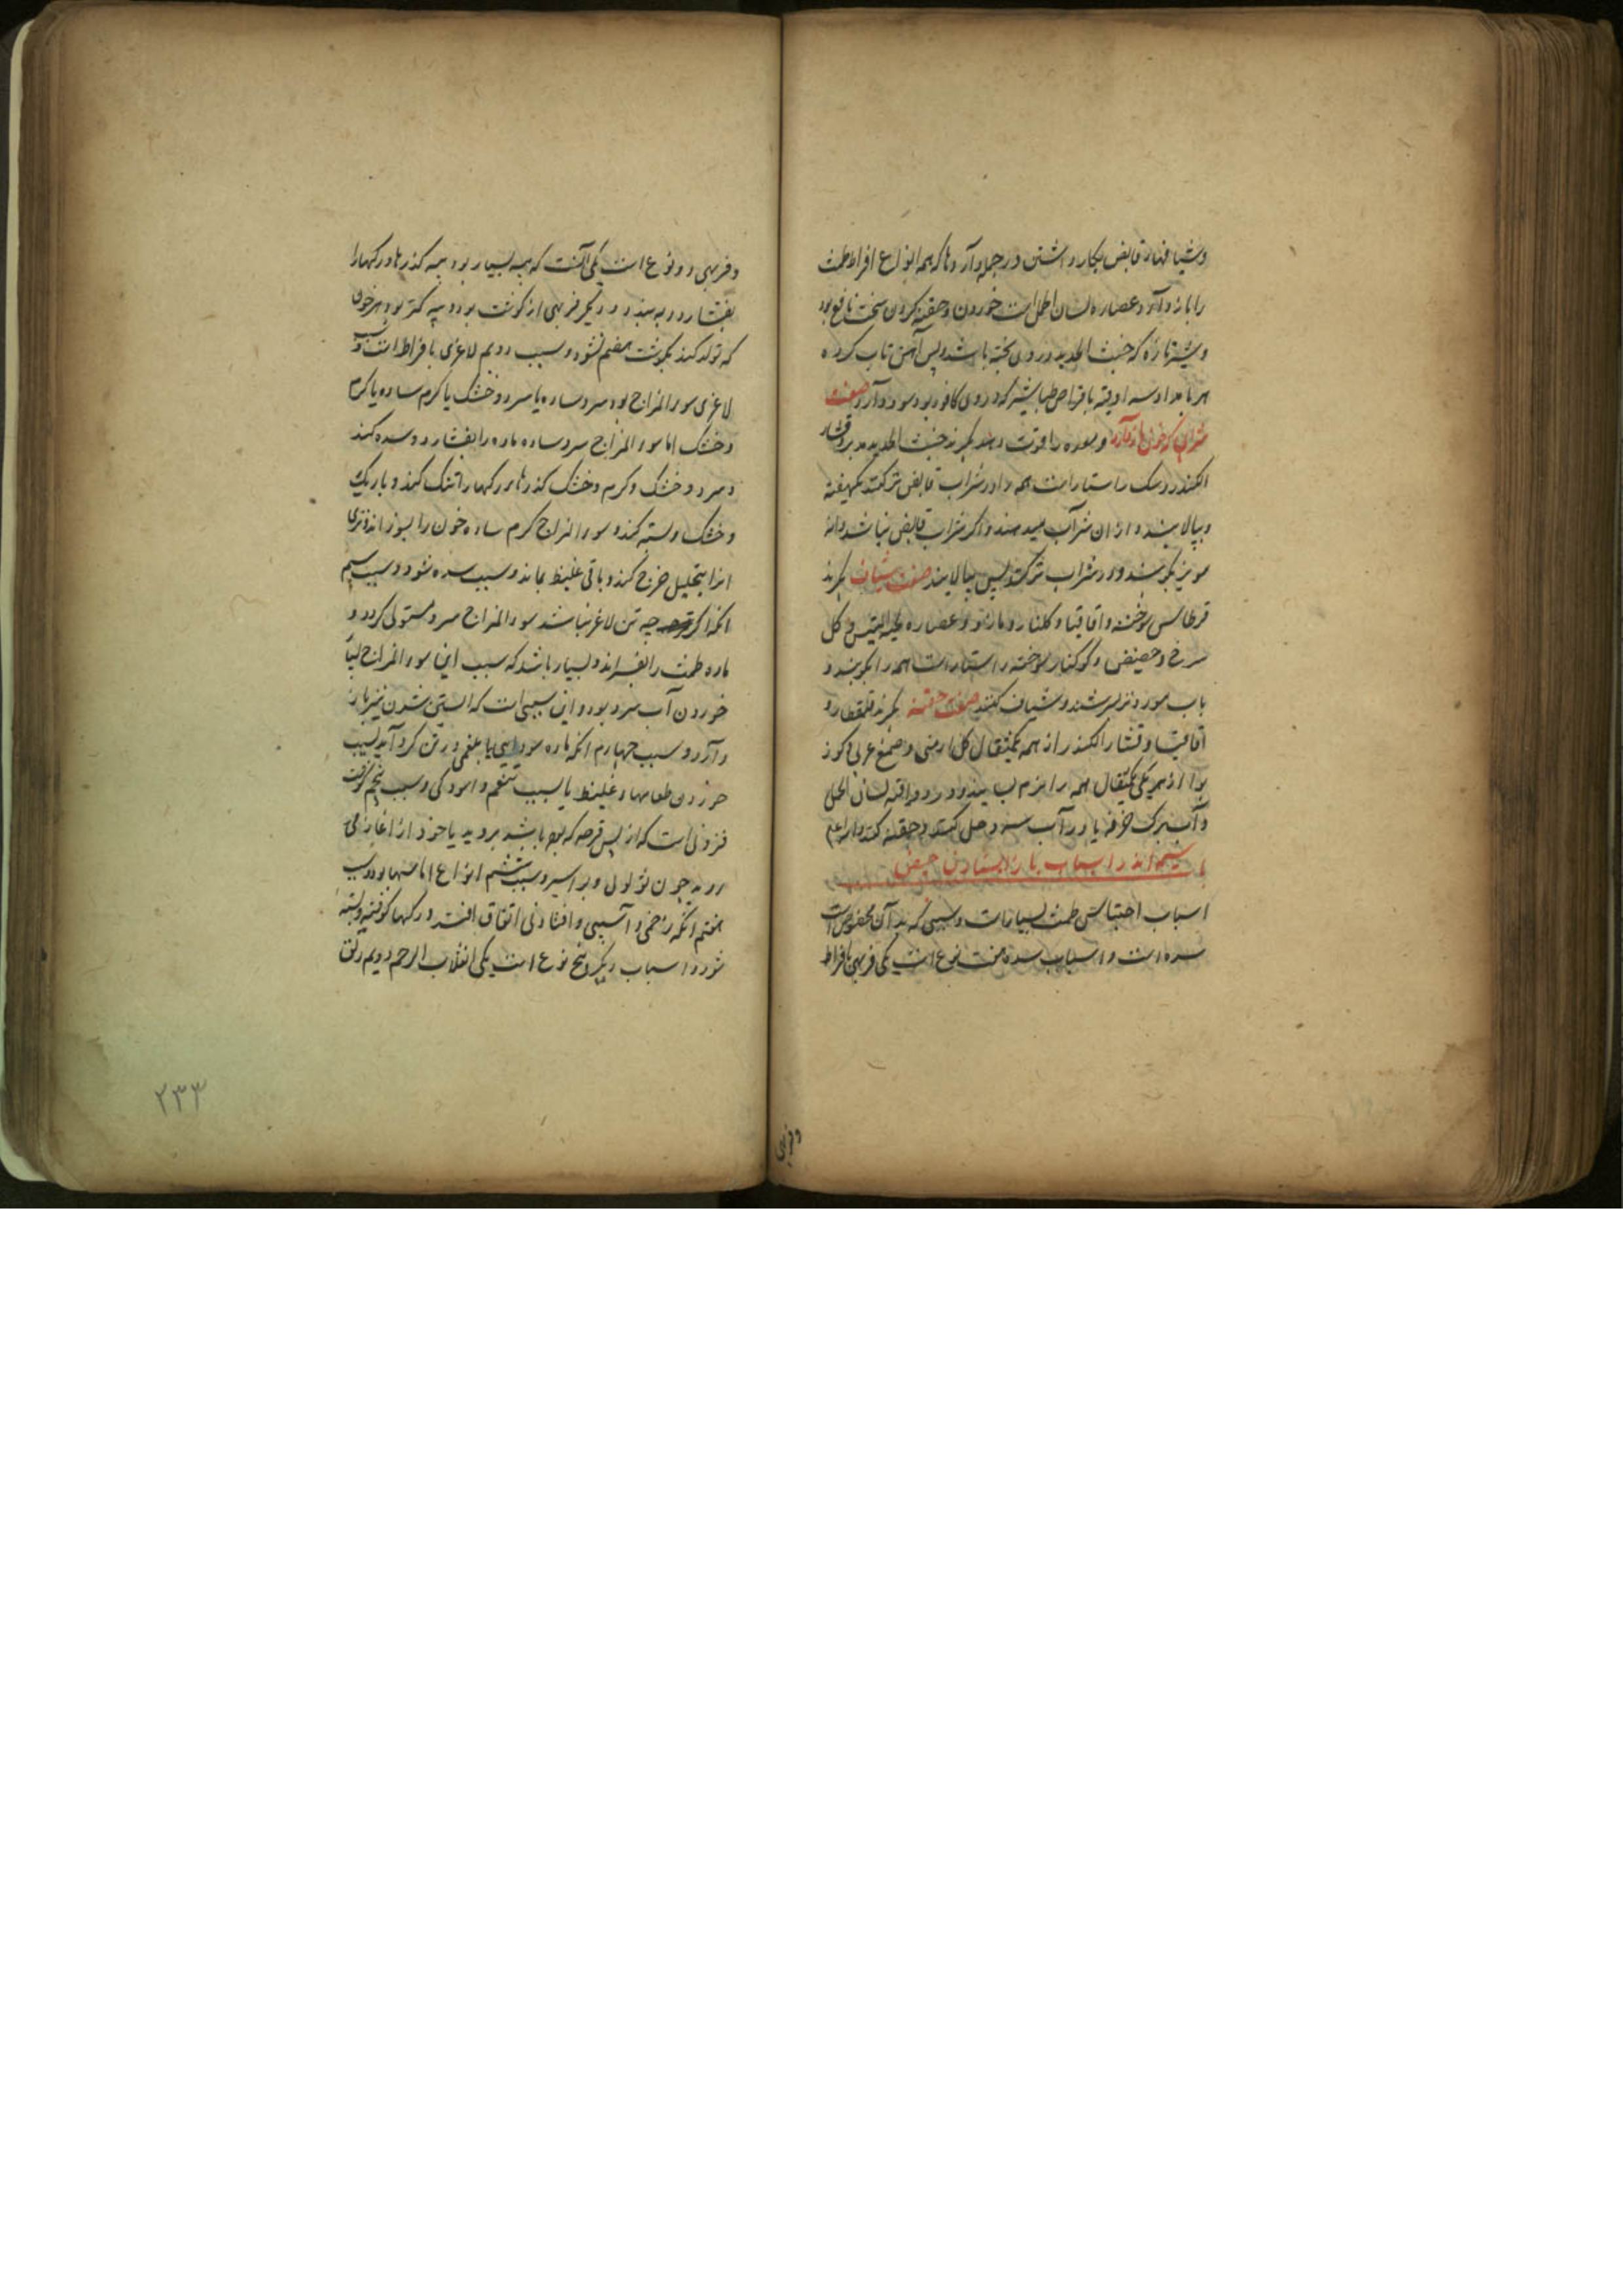 وشیافهاء قابض بکار داشتن و در جمله داروها که همه انواع افراط طمث
را باز دارد و عصاره لسان الحمل است خوردن و حقنه کردن سخت نافع بود
و شیر تازه که خبث الحدید در وی پخته باشند پس آهن تاب کرده
هر بامداد سه اوقیه با قراص طباشیر که در وی کافور بود سود دارد صفت
شرابی که خون باز دارد و معده را قوت دهد بگیرند خبث الحدید مدبر و قشار
الکندر و سک راستاراست همه را در شراب قابض تر کنند یکهفته
و بپالایند و ازان شراب میدهند و اگر شراب قابض نباشد دانه
مویز بکوبند و در شراب تر کنند پس بپالایند صفت شیاف بگیرند
قرطاس سوخته و اقاقیا و گلنار و مازو و عصاره لحیة التیس و گل
سرخ و حضض و کوکنار سوخته راستاراست همه را بکوبند و
باب مورد تر بسرشند و شیاف کنند صفت حقنه بگیرند قلقطار و
اقاقیا و قشار الکندر از همه یکمثقال گل ارمنی و صمغ عربی و کوز
بوا از هر یکی یکمثقال همه را نرم بسایند و در دو اوقیه لسان الحمل
و آب برک خرفه یا در آب سرد حل کنند و حقنه کنند والله اعلم
باب سیم اندر اسباب باز ایستادن حیض
اسباب احتباس طمث بسیارست و سببی که بدان مخصوص است
سده است و اسباب سده هفت نوع است یکی فربهی بافراط
وفربهی
وفربهی دو نوع است یکی آنست که پیه بسیار بود همه گذرها و رگهارا
بفشارد و ببندد و دیگر فربهی از گوشت بود و پیه کمتر بود و هر خون
که تولد کند بگوشت هضم شود و سبب دویم لاغری بافراط است و سبب
لاغری سوء المزاج بود سرد ساده یا سرد و خشک یا گرم ساده یا گرم
و خشک اما سوء المزاج سرد ساده ماده را بفشارد و سده کند
و سرد و خشک و گرم و خشک گذرها و رگها را تنک کند و باریک
و خشک و بسته کند و سوء المزاج گرم ساده خون را بسوزاند و تری
انرا بتحلیل خرج کند و باقی غلیظ بماند و سبب سده شود و سبب سیم
انکه اگر چه تن لاغر نباشد سوء المزاج سرد مستولی گردد و
ماده طمث را بفسراند و بسیار باشد که سبب این سوء المزاج
خوردن آب سرد بود و این سببی است که آبستن شدن نیز باز
دارد و سبب چهارم انکه ماده سودایی یا بلغمی در تن گرد آید بسبب
خوردن طعامهاء غلیظ یا بسبب تنعم و اسودگی و سبب پنجم گوشت
فزونی است که از پس قرحه که بوده باشد بروید یا خود از اغاز می
روید چون ثولول و بواسیر و سبب ششم انواع اماسها بود و سبب
هفتم انکه زخمی و آسیبی و افتادنی اتفاق افتد و رگها کوفته و بسته
شود و اسباب دیگر و پنج نوع است یکی انقلاب الرحم دویم رتق
۲۳۳